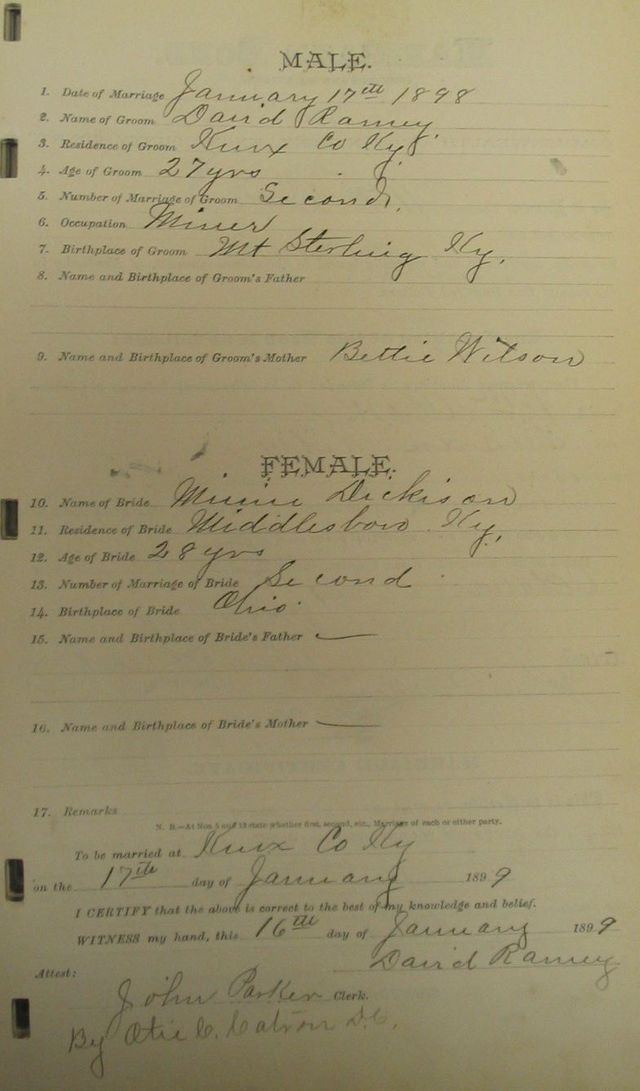 MALE.
1. Date of Marriage January 17th 1898
2. Name of Groom David Ramey
3. Residence of Groom Knox Co Ky
4. Age of Groom 27 yrs
5. Number of Marriage of Groom Second,
6. Occupation Miner
7. Birthplace of Groom Mt Sterling Ky,
8. Name and Birthplace of Groom's Father
9. Name and Birthplace of Groom's Mother Bettie Wilson
FEMALE.
10. Name of Bride Minnie Dickison
11. Residence of Bride Middlesboro Ky,
12. Age of Bride 28 yrs
13. Number of Marriage of Bride Second
14. Birthplace of Bride Ohio
15. Name and Birthplace of Bride's Father —
16. Name and Birthplace of Bride's Mother —
17. Remarks
N. B.—At Nos 5 and 13 state whether first, second, etc., Marriage of each or either party.
To be married at Knox Co Ky
on the 17th day of January 1899
I CERTIFY that the above is correct to the best of my knowledge and belief.
WITNESS my hand, this 16th day of January 1899
David Ramey
Attest:
John Parker Clerk.
By Otie C. Catron D.C.